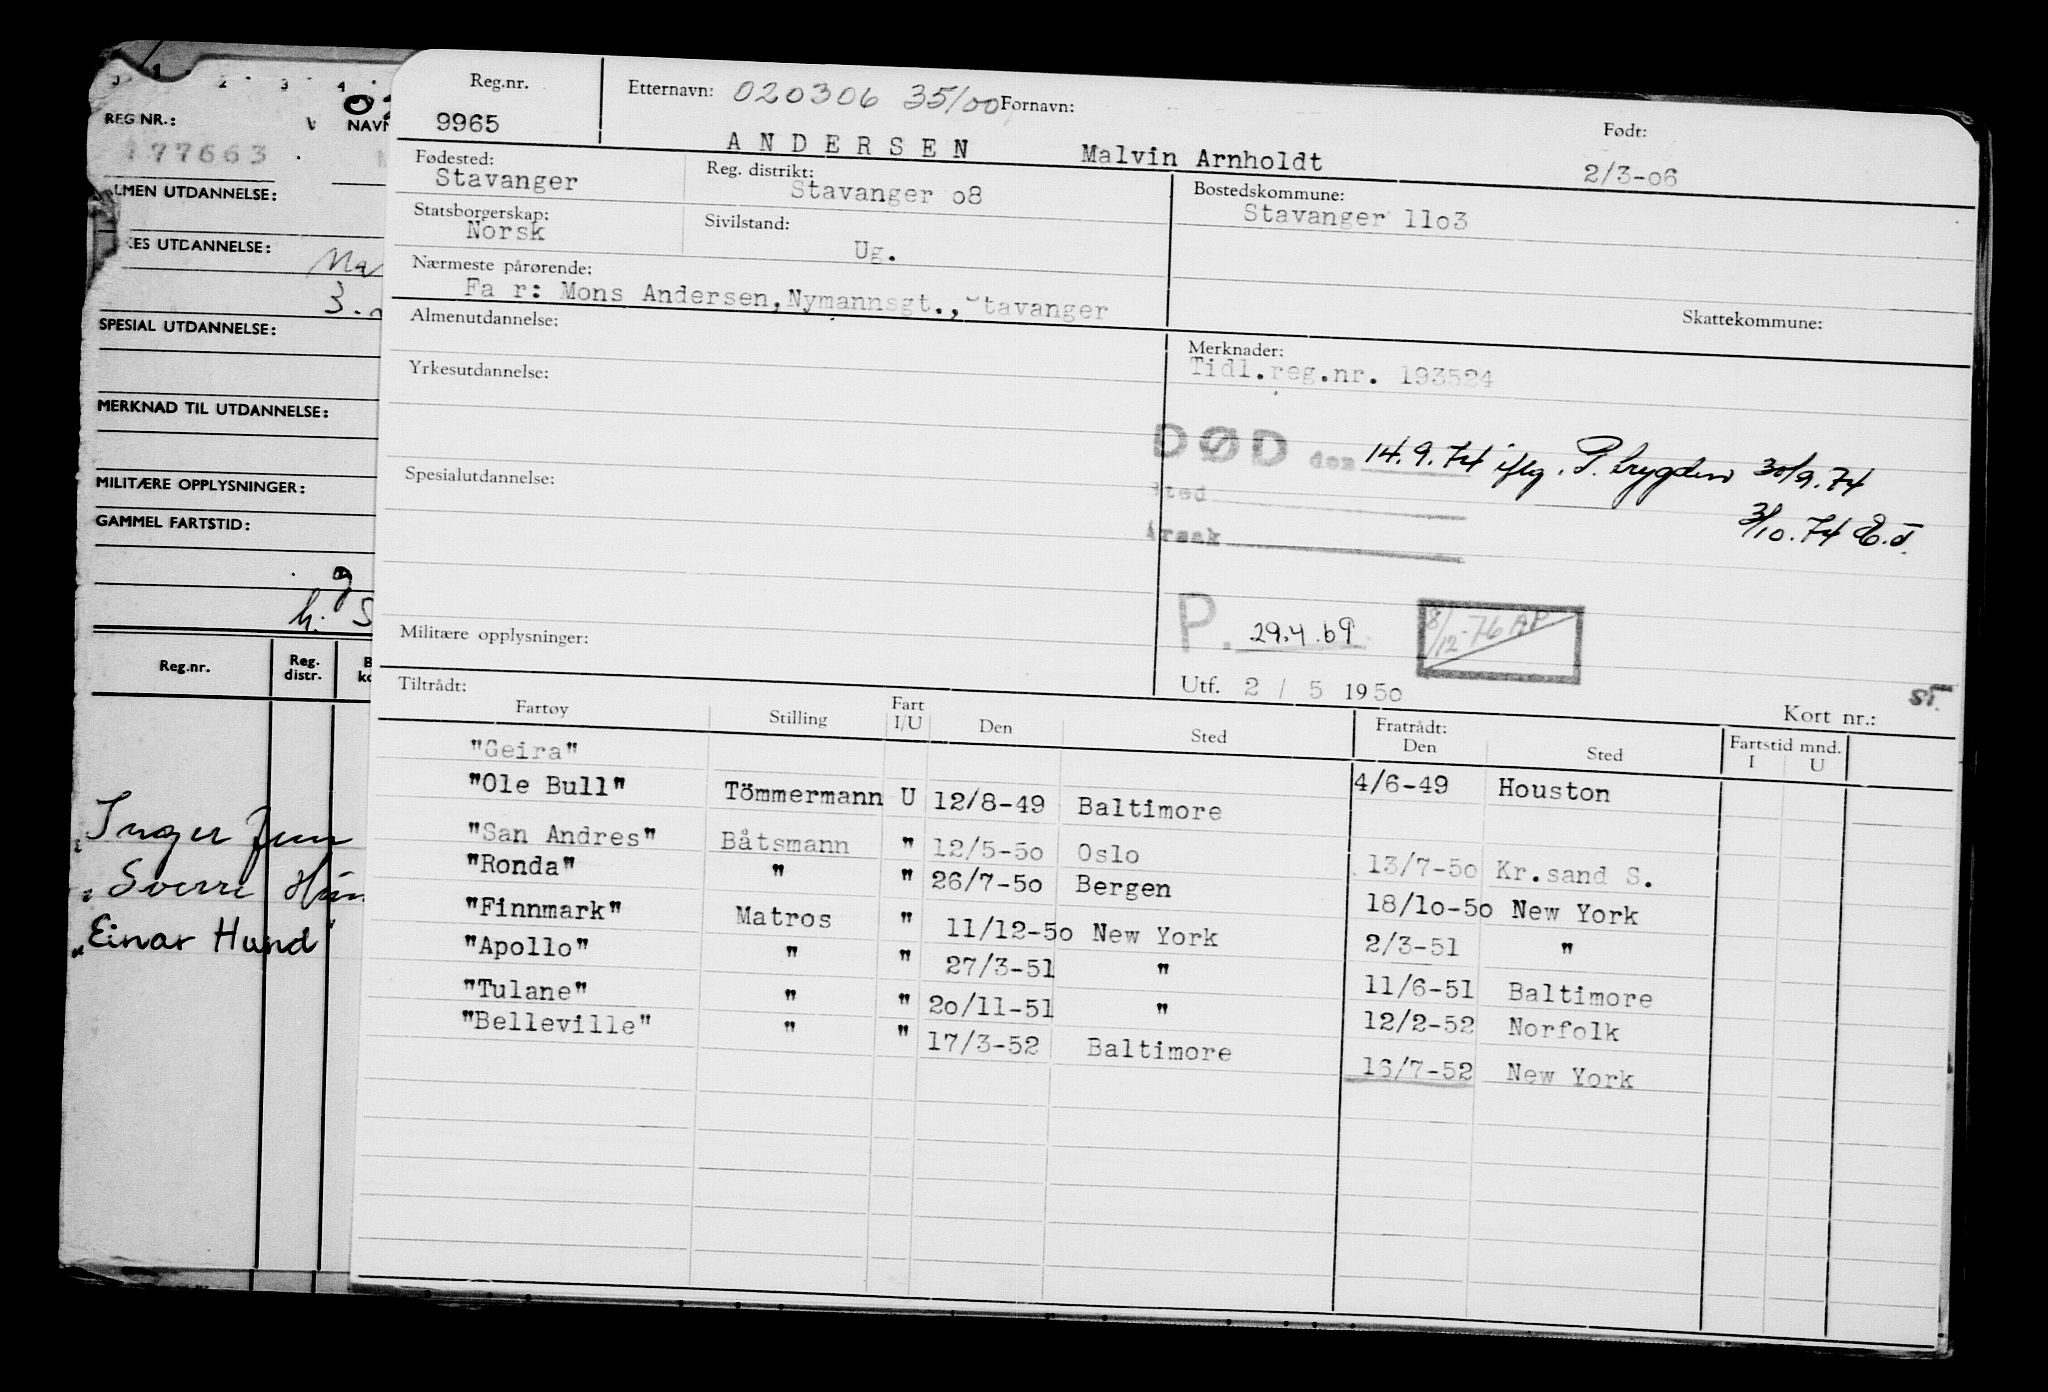 1 2 3 4
REG NR.:
177663
NAVN
ALMEN UTDANNELSE:
YRKES UTDANNELSE:
3.
SPESIAL UTDANNELSE:
MERKNAD TIL UTDANNELSE:
MILITÆRE OPPLYSNINGER:
GAMMEL FARTSTID:
h.
Reg.nr. Reg. distr.
Inger
Sverre
"Einar Hund"
Reg.nr. Etternavn: 020306 35/00 Fornavn: Født:
9965 ANDERSEN Malvin Arnholdt 2/3-06
Fødested: Reg. distrikt: Bostedskommune:
Stavanger Stavanger o8 Stavanger 11o3
Statsborgerskap: Sivilstand:
Norsk Ug.
Nærmeste pårørende:
Fa r: Mons Andersen, Nymannsgt., Stavanger
Skattekommune:
Almenutdannelse: Merknader:
Tidl.reg.nr. 193524
Yrkesutdannelse:
DØD den 14.9.74 iflg. P. trygden 30/9.74
Spesialutdannelse: Sted 3/10.74 E.T.
Årsak
P. 29.4.69 8/12-76 AP
Militære opplysninger:
Utf. 2 / 5 1950 ST.
Tiltrådt: Kort nr.:
Fartøy Stilling Fart I/U Den Sted Fratrådt: Den Sted Fartstid mnd. I U
"Geira" 4/6-49 Houston
"Ole Bull" Tömmermann U 12/8-49 Baltimore
"San Andres" Båtsmann " 12/5-5o Oslo 13/7-5o Kr.sand S.
"Ronda" " " 26/7-5o Bergen 18/1o-5o New York
"Finnmark" Matros " 11/12-5o New York 2/3-51 "
"Apollo" " " 27/3-51 " 11/6-51 Baltimore
"Tulane" " " 2o/11-51 " 12/2-52 Norfolk
"Belleville" " " 17/3-52 Baltimore 16/7-52 New York